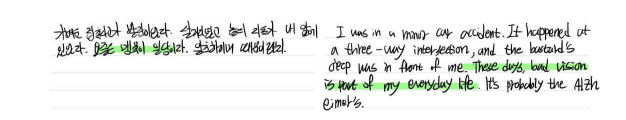 가벼운 접촉사고가 발생했다. 삼거리였고 놈의 지프가 내 앞에
있었다. 요즘은 맹목이 일상이다. 알츠하이머 때문일 것이다.
I was in a minor car accident. It happened at
a three-way intersection, and the bastard's
jeep was in front of me. These days, bad vision
is part of my everyday life. It's probably the Alzh
eimer's.